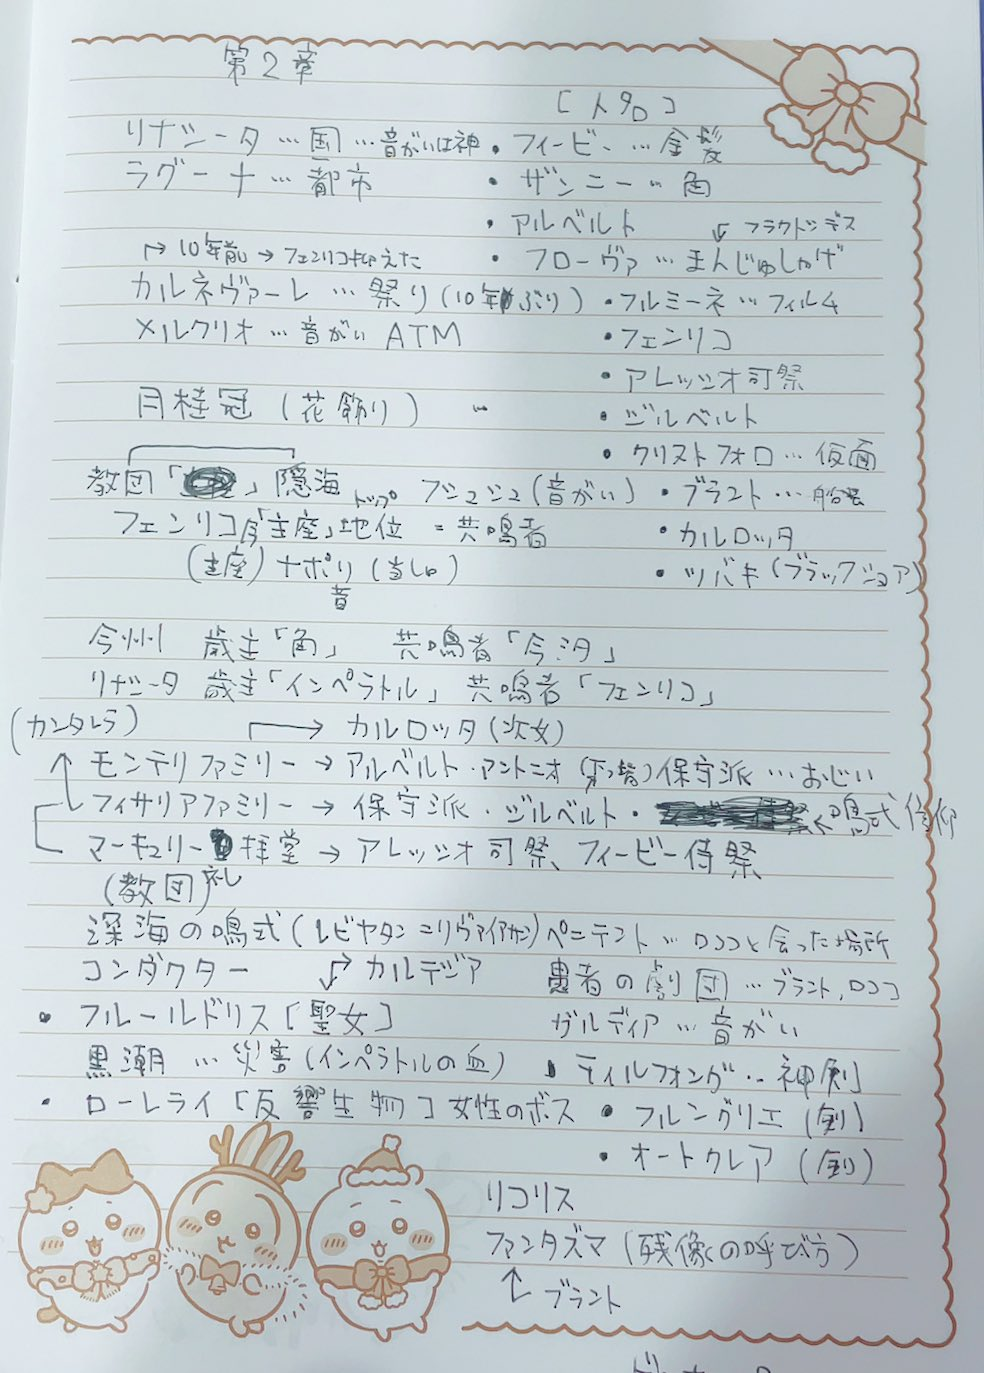 第2章
[人名]
リナシータ…国…音がいは神
・フィービー…金髪
ラグーナ…都市
・ザンニー…角
・アルベルト
↙フラクトシデス
↱10年前→フェンリコ抑えた
・フローヴァ…まんじゅしゃげ
カルネヴァーレ…祭り(10年ぶり)
・フルミーネ…フィルム
メルクリオ…音がいATM
・フェンリコ
・アレッシオ司祭
月桂冠(花飾り)…
・ジルベルト
・クリストフォロ…仮面
教団「」隠海 トップ
プシュシュ(音がい)
・ブラント…船長
フェンリコ「主座」地位=共鳴者
・カルロッタ
(主座)ナポリ(当しゅ)
・ツバキ(ブラックショア)
音
今州 歳主「角」 共鳴者「今汐」
リナシータ 歳主「インペラトル」 共鳴者「フェンリコ」
(カンタレラ)
→カルロッタ(次女)
モンテリファミリー→アルベルト・アントニオ保守派…おじい
フィサリアファミリー→保守派・ジルベルト・←鳴式信仰
マーキュリー拝堂→アレッシオ司祭、フィービー侍祭
(教団)礼
深海の鳴式(レビヤタン=リヴァイアサン)
ペニテント…ロココと会った場所
コンダクター
カルテジア
愚者の劇団…ブラント,ロココ
・フルールドリス[聖女]
ガルディア…音がい
黒潮…災害(インペラトルの血)
・ティルフォング…神剣
・ローレライ[反響生物]女性のボス
・フルングリエ(剣)
・オートクレア(剣)
リコリス
ファンタズマ(残像の呼び方)
ブラント